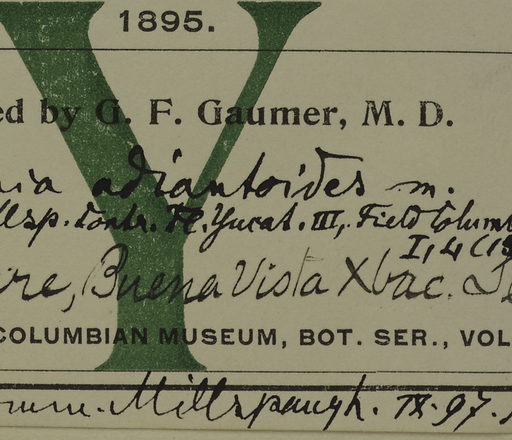 1895.
ed by G. F. Gaumer, M. D.
nia adiantoides m.
llsp. Contr. Fl. Yucat. III, Field Columb
I, 4 (19
re, Buena Vista Xbac. Se
COLUMBIAN MUSEUM, BOT. SER., VOL
Millspaugh. IX. 97.
Y